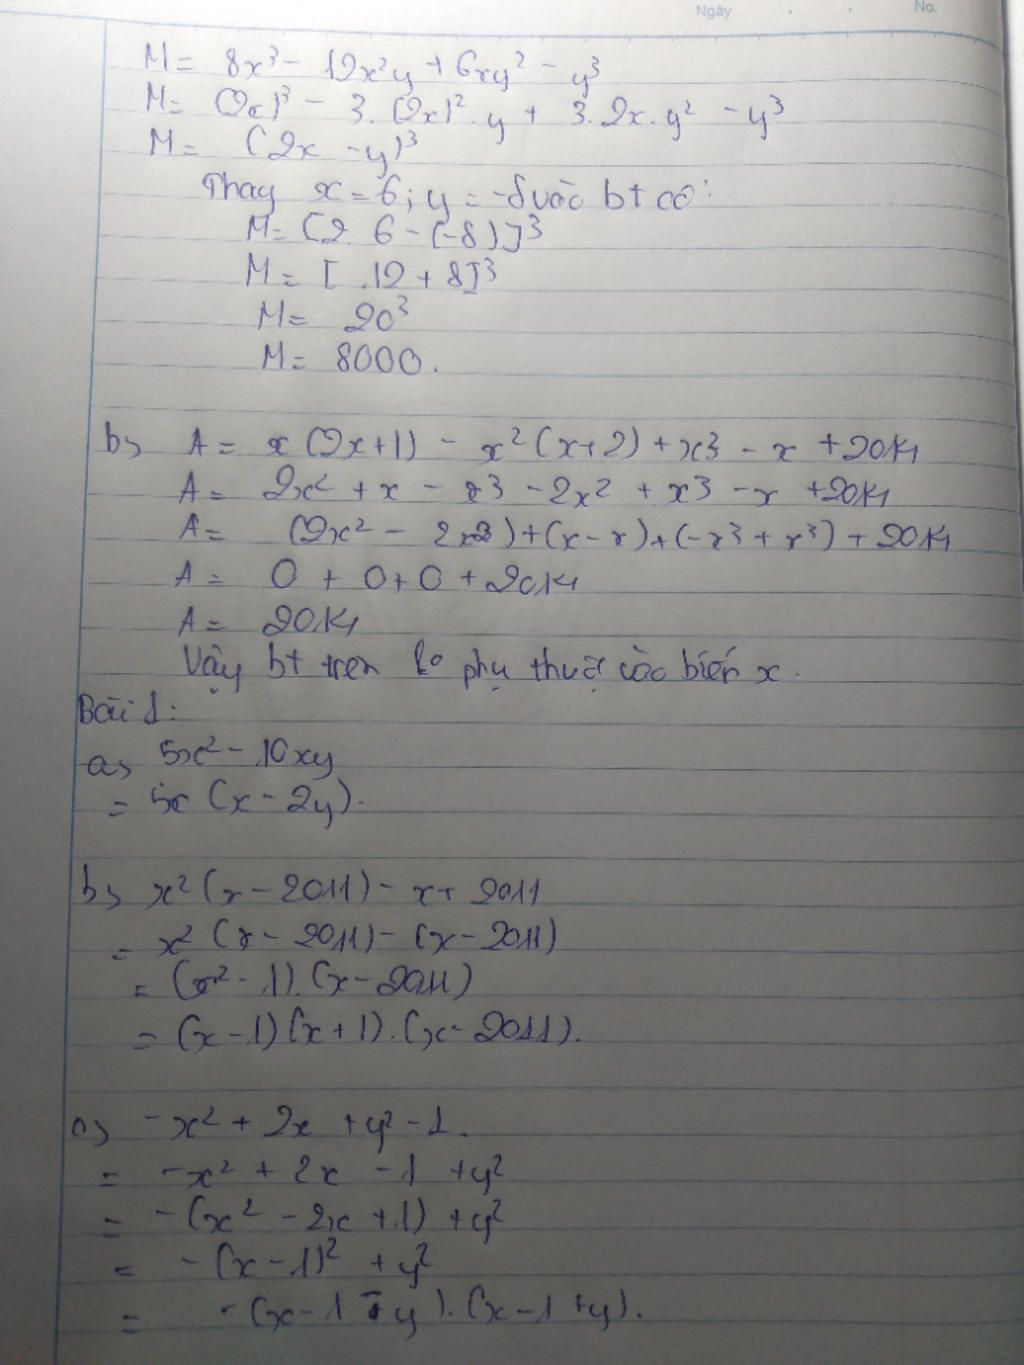 Ngày
No.
M = 8x³ - 12x²y + 6xy² - y³
M = (2x)³ - 3.(2x)².y + 3.2x.y² - y³
M = (2x - y)³
Thay x = 6; y = -8 vào bt có:
M = [2.6 - (-8)]³
M = [.12 + 8]³
M = 20³
M = 8000.
b, A = x(2x+1) - x²(x+2) + x³ - x + 2014
A = 2x² + x - x³ - 2x² + x³ - x + 2014
A = (2x² - 2x2) + (x - x) + (-x³ + x³) + 2014
A = 0 + 0 + 0 + 2014
A = 2014
Vậy bt tren ko phụ thuộc vào biến x.
Bài 1:
a, 5x² - 10xy
= 5x(x - 2y).
b, x²(x - 2011) - x + 2011
= x²(x - 2011) - (x - 2011)
= (x² - 1).(x - 2011)
= (x - 1)(x + 1).(x - 2011).
c, -x² + 2x + y² - 1.
= -x² + 2x - 1 + y²
= -(x² - 2x + 1) + y²
= -(x - 1)² + y²
= -(x - 1 - y).(x - 1 + y).